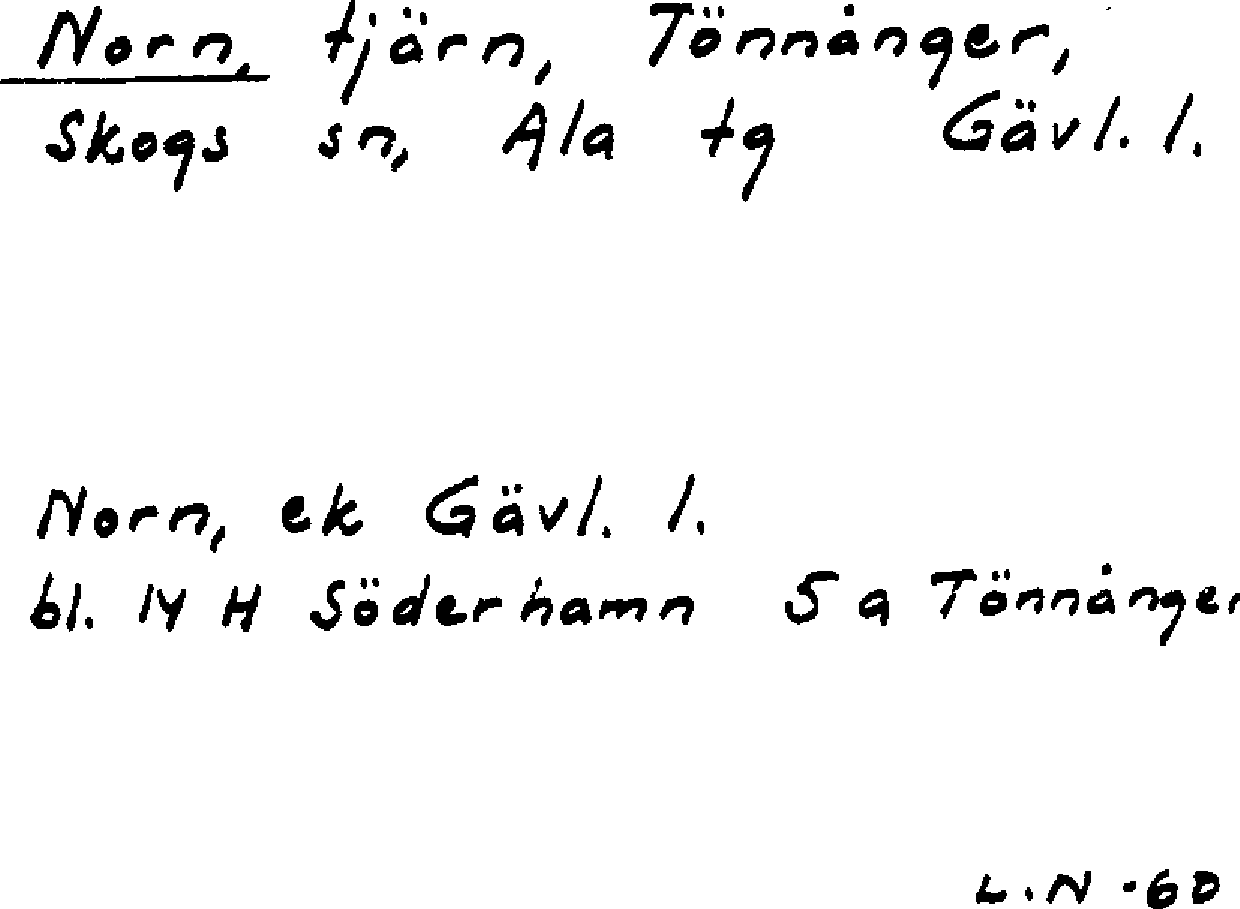 Norn, tjärn, Tönnånger,
Skogs sn, Ala tg Gävl. l.
Norn, ek Gävl. l.
bl. 14 H Söderhamn 5 a Tönnånger
L.N -60